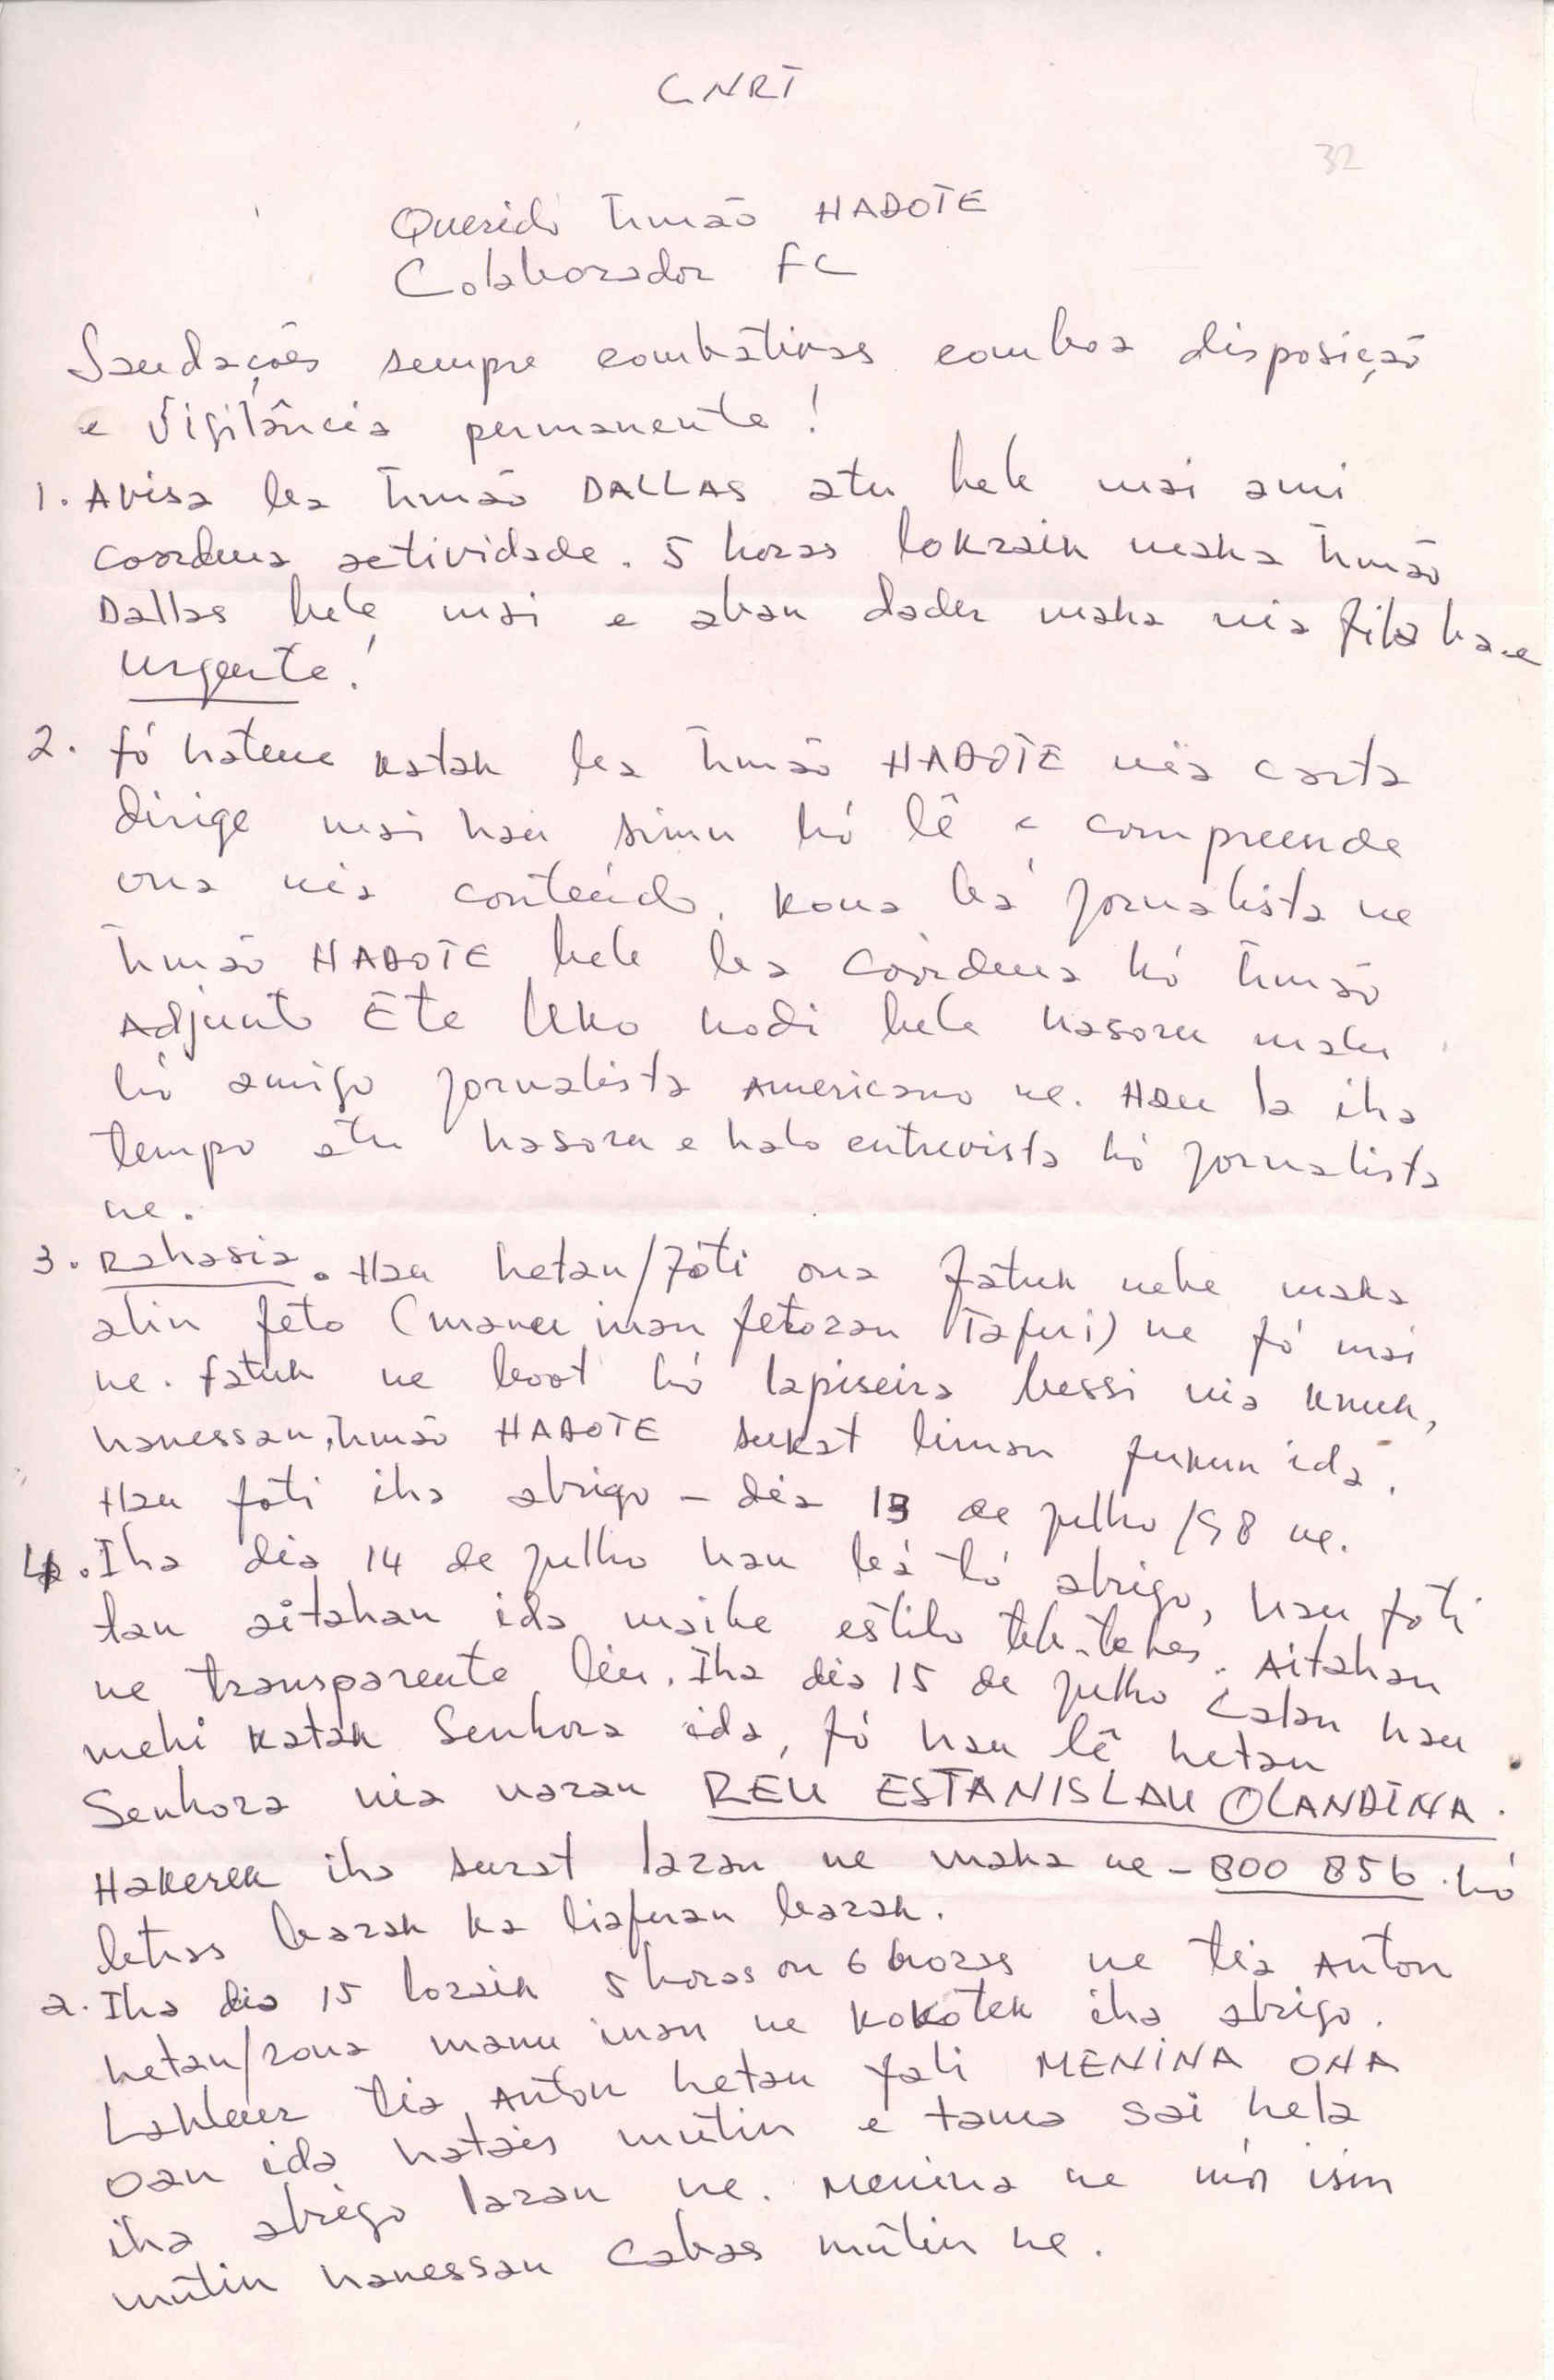 CNRT
32
Querido Irmão HADOTE
Colaborador FC
Saudações sempre combativas com boa disposição
e Vigilância permanente!
1. Avisa ba Irmão DALLAS atu bele mai ami
coordena actividade. 5 horas lokraik maka Irmão
Dallas bele mai e aban dader maka nia fila ba-e
urgente!
2. fó hatene katak ba Irmão HADOTE nia carta
dirige mai hau simu hó lê e compreende
ona nia conteúdo. Kona bá jornalista ne
Irmão HADOTE bele ba coordena hó Irmão
Adjunto Ete Uko hodi bele hasoru malu
hó amigo jornalista Americano ne. Hau la iha
tempo atu hasoru e halo entrevista hó jornalista
ne.
3. Rahasia. Hau hetan/foti ona fatuk nebe maka
alin feto (manu inan fetoran Tafui) ne fó mai
ne. fatuk ne boot hó lapiseira bessi nia knuk,
hanessan, Irmão HADOTE sukat liman fukun ida.
Hau foti iha abrigo - dia 13 de julho/98 ne.
4. Iha dia 14 de julho hau bá tó abrigo, hau foti
tan aitahan ida maibe estilo teh-tehes. Aitahan
ne transparente liu. Iha dia 15 de julho calan hau
mehi katak Senhora ida, fó hau lê hetan
Senhora nia naran REU ESTANISLAU OLANDINA.
Hakerek iha surat laran ne maka ne - 800 856. hó
letras barak ka liafuan barak.
a. Iha dia 15 loraik 5 horas ou 6 horas ne tia Anton
hetan/rona manu inan ne kokotek iha abrigo.
Lakleur tia Anton hetan fali MENINA OHA
oan ida hatais mutin e tama sai hela
iha abrigo laran ne. Menina ne mós isin
mutin hanessan cabas mutin ne.